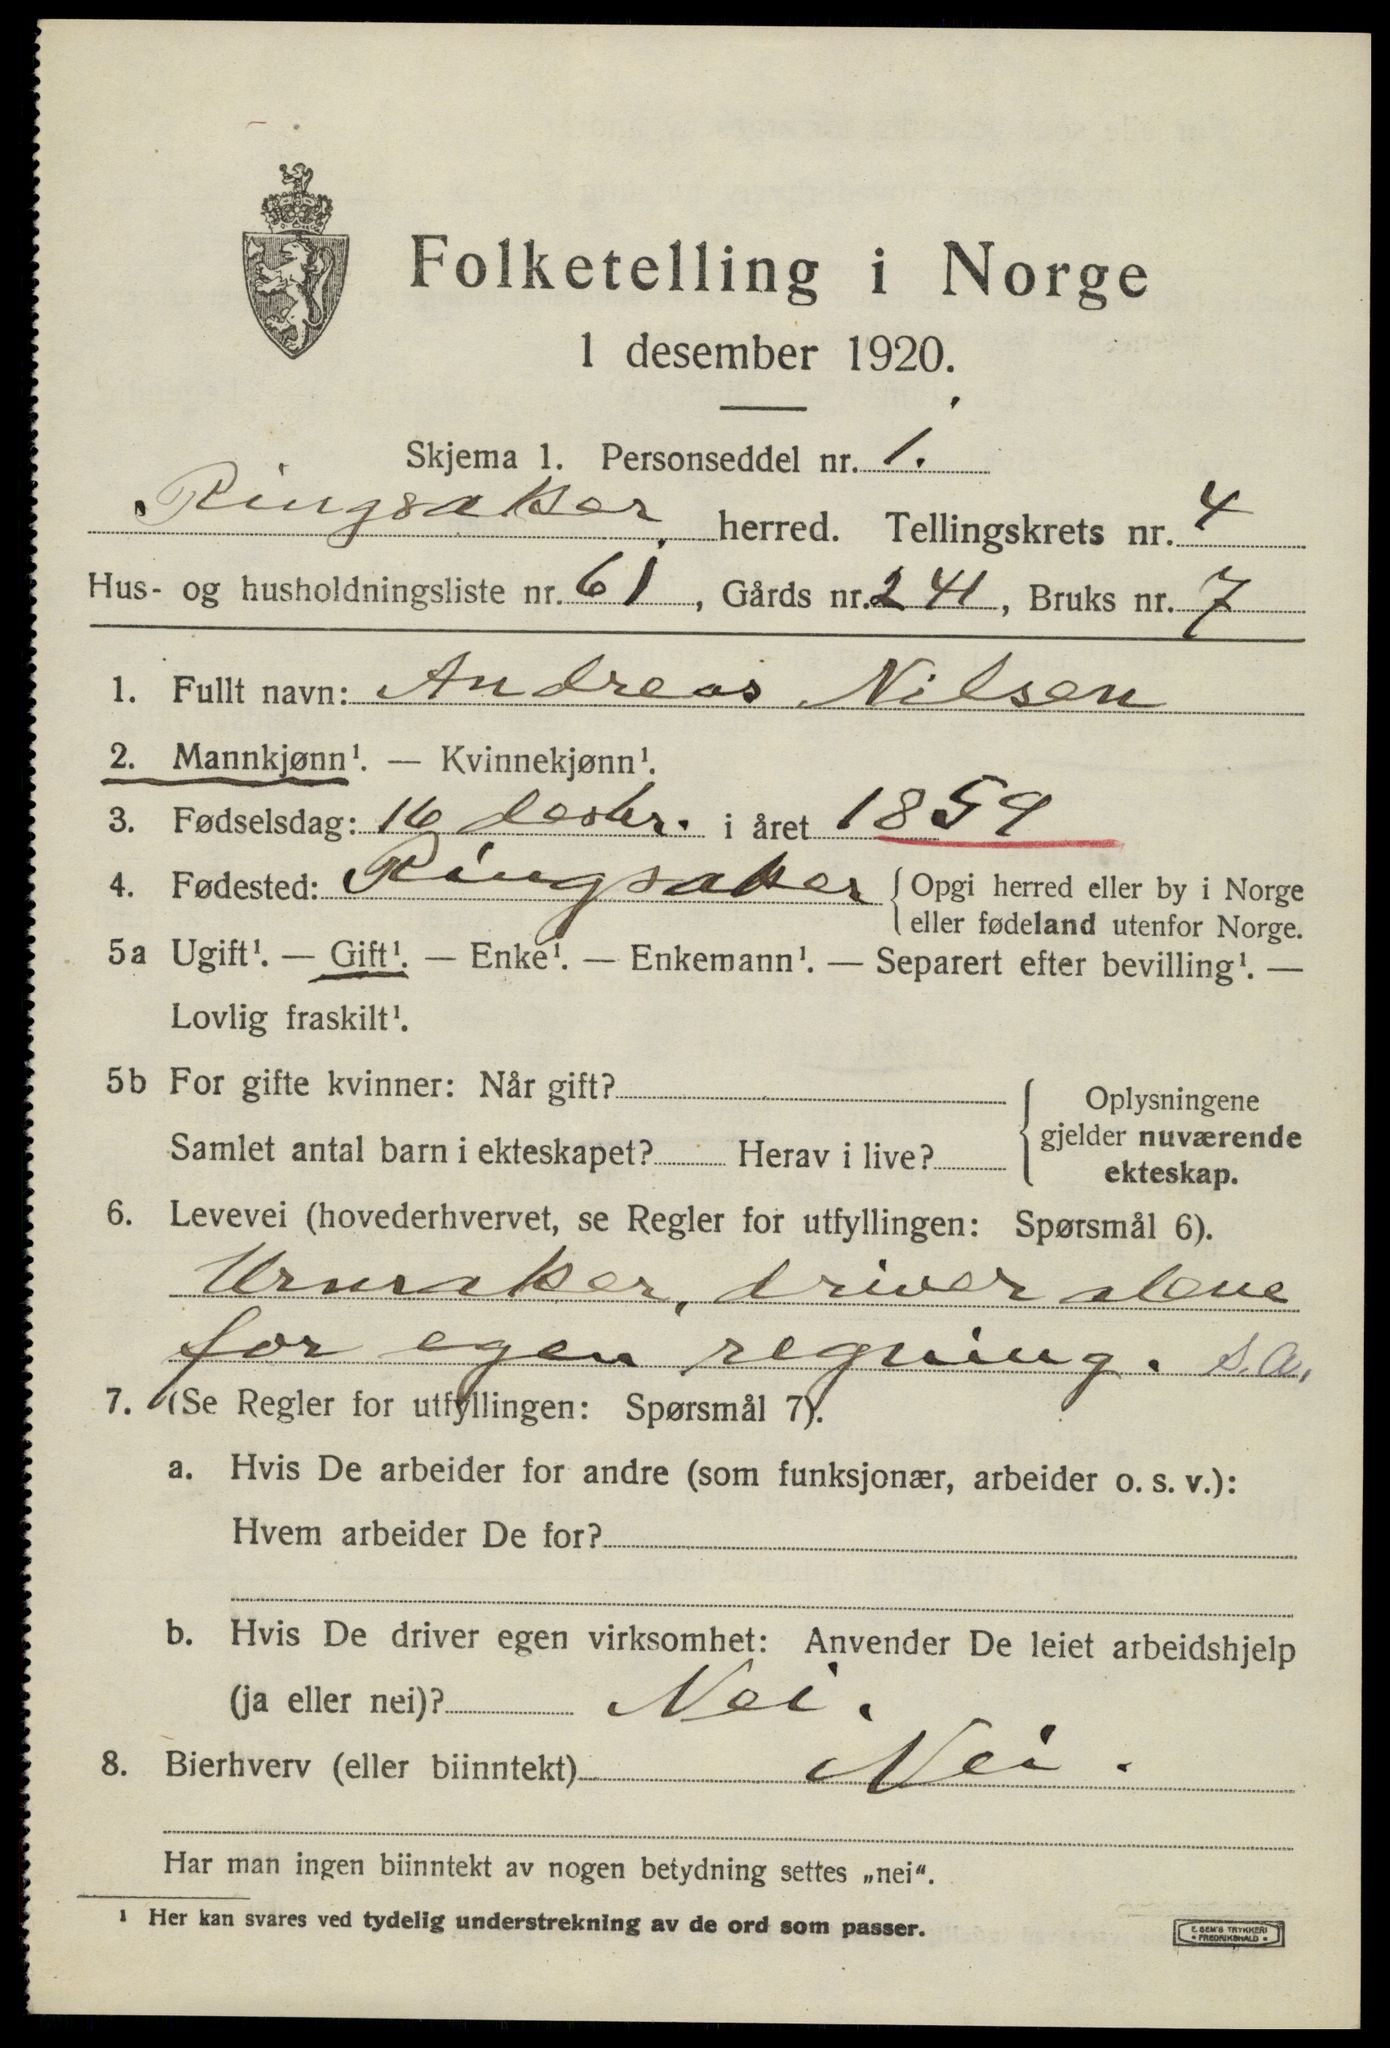 Folketelling i Norge
1 desember 1920.
Skjema 1. Personseddel nr. 1.
Ringsaker herred. Tellingskrets nr. 4
Hus- og husholdningsliste nr. 61, Gårds nr. 241, Bruks nr. 7
1. Fullt navn: Andreas Nilsen
2. Mannkjønn¹. — Kvinnekjønn¹.
3. Fødselsdag: 16 desbr. i året 1859
4. Fødested: Ringsaker { Opgi herred eller by i Norge
eller fødeland utenfor Norge.
5a Ugift¹. — Gift¹. — Enke¹. — Enkemann¹. — Separert efter bevilling¹. —
Lovlig fraskilt¹.
5b For gifte kvinner: Når gift?
Samlet antal barn i ekteskapet? Herav i live?
Oplysningene
gjelder nuværende
ekteskap.
6. Levevei (hovederhvervet, se Regler for utfyllingen: Spørsmål 6).
Urmaker, driver alene
for egen regning. S.A.
7. (Se Regler for utfyllingen: Spørsmål 7).
a. Hvis De arbeider for andre (som funksjonær, arbeider o. s. v.):
Hvem arbeider De for?
b. Hvis De driver egen virksomhet: Anvender De leiet arbeidshjelp
(ja eller nei)? Nei.
8. Bierhverv (eller biinntekt) Nei.
Har man ingen biinntekt av nogen betydning settes „nei“.
¹ Her kan svares ved tydelig understrekning av de ord som passer.
E. SEM'S TRYKKERI
• FREDRIKSHALD •